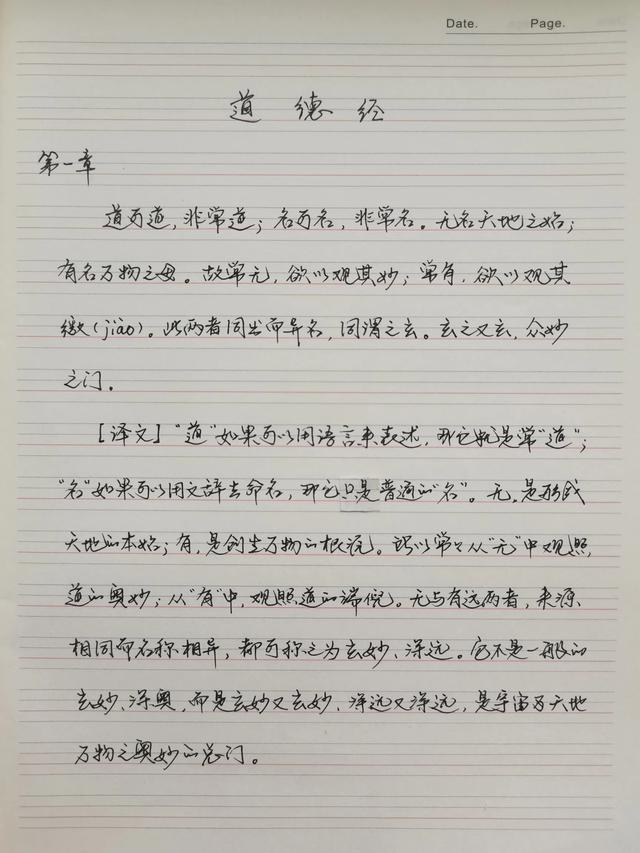 Date. Page.
道德经
第一章
道可道,非常道;名可名,非常名。无名天地之始;
有名万物之母。故常无,欲以观其妙;常有,欲以观其
徼(jiào)。此两者同出而异名,同谓之玄。玄之又玄,众妙
之门。
[译文]“道”如果可以用语言来表述,那它就是常“道”;
“名”如果可以用文辞去命名,那它只是普通的“名”。无,是形成
天地的本始;有,是创生万物的根源。所以常常从“无”中观照
道的奥妙;从“有”中,观照道的端倪。无与有这两者,来源
相同而名称相异,都可称之为玄妙、深远。它不是一般的
玄妙、深奥,而是玄妙又玄妙、深远又深远,是宇宙万天地
万物之奥妙的总门。